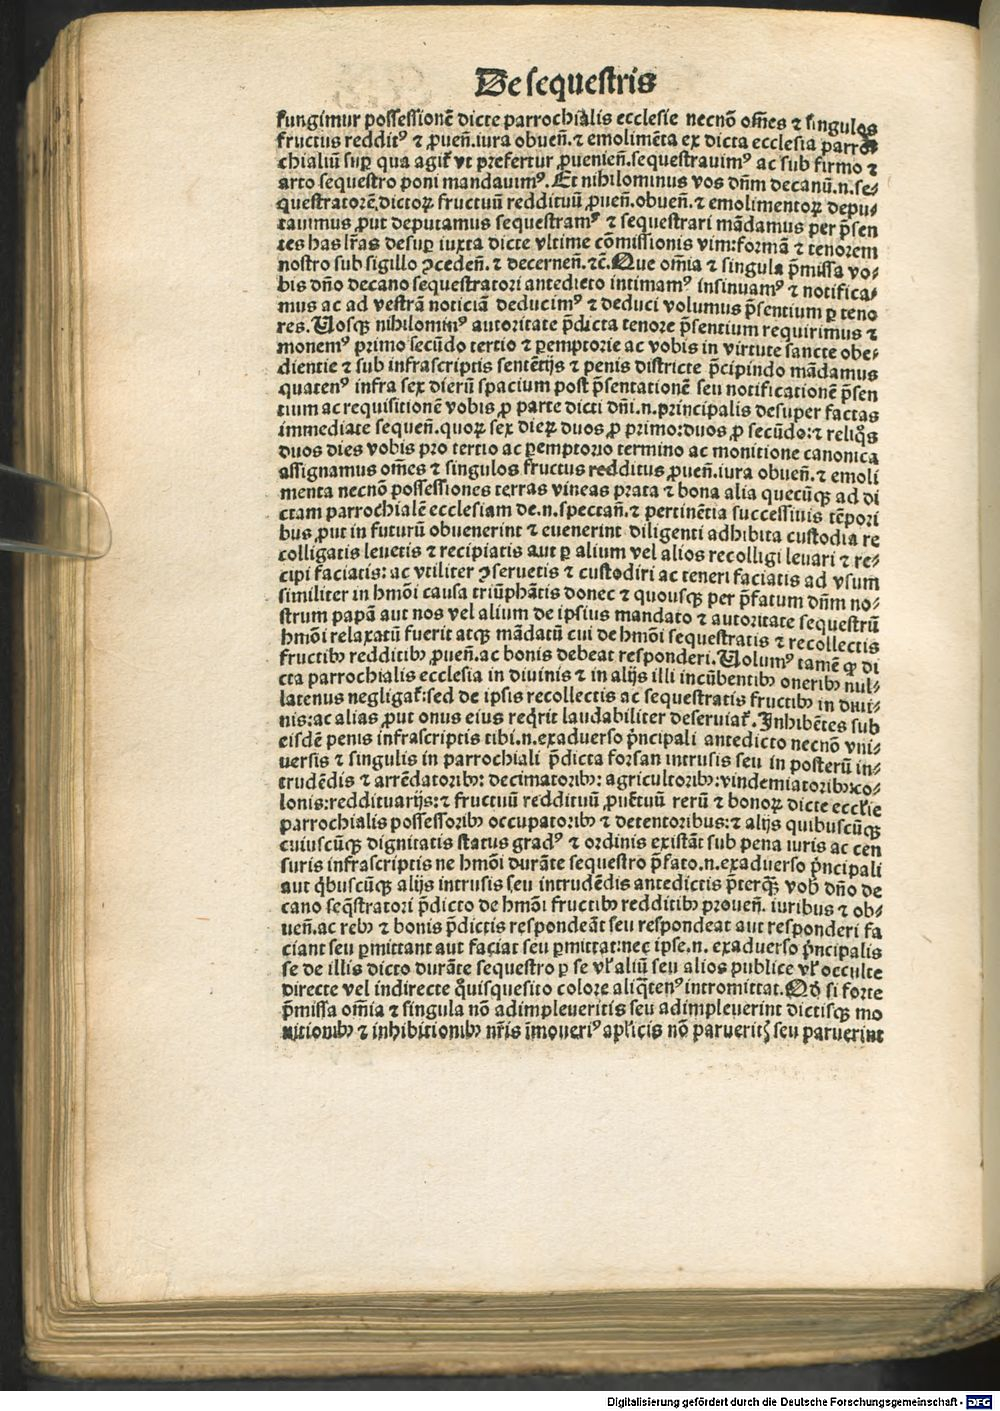 De sequestris
fungimur possessionē dicte parrochialis ecclesie necnō om̄es ⁊ singulos
fructus reddit⁹ ⁊ ꝓuen̄.iura obuen̄.⁊ emolimēta ex dicta ecclesia parro
chialiū suꝑ qua agit̃ vt prefertur ꝓuenien̄.sequestrauim⁹ ac sub firmo ⁊
arto sequestro poni mandauim⁹. Et nihilominus vos dn̄m decanū.n.se⸗
questratorē.dictoꝝ fructuū reddituū ꝓuen̄.obuen̄.⁊ emolimentoꝝ depu⸗
tauimus ꝓut deputamus sequestram⁹ ⁊ sequestrari mādamus per p̄sen
tes has lr̄as desuꝑ iuxta dicte vltime cōmissionis vim:formā ⁊ tenorem
nostro sub sigillo ꝯceden̄.⁊ decernen̄.⁊c̄. Que om̄ia ⁊ singula p̄missa vo⸗
bis dn̄o decano sequestratori antedicto intimam⁹ insinuam⁹ ⁊ notifica⸗
mus ac ad vestrā noticiā deducim⁹ ⁊ deduci volumus p̄sentium ꝑ teno
res. Uosqꝫ nihilomin⁹ autoritate p̄dicta tenore p̄sentium requirimus ⁊
monem⁹ primo secūdo tertio ⁊ ꝑemptorie ac vobis in virtute sancte obe⸗
dientie ⁊ sub infrascriptis sentētijs ⁊ penis districte p̄cipindo mādamus
quaten⁹ infra sex dierū spacium post p̄sentationē seu notificationē p̄sen
tium ac requisitionē vobis ꝓ parte dicti dn̄i.n.principalis desuper factas
immediate sequen̄.quoꝝ sex dieꝝ duos ꝓ primo:duos ꝓ secūdo:⁊ reliq̊s
duos dies vobis pro tertio ac ꝑemptorio termino ac monitione canonica
assignamus om̄es ⁊ singulos fructus redditus ꝓuen̄.iura obuen̄.⁊ emoli
menta necnō possessiones terras vineas prata ⁊ bona alia quecūqꝫ ad di
ctam parrochialē ecclesiam de.n.spectan̄.⁊ pertinētia successiuis tēpori
bus ꝓut in futurū obuenerint ⁊ euenerint diligenti adhibita custodia re
colligatis leuetis ⁊ recipiatis aut ꝑ alium vel alios recolligi leuari ⁊ re⸗
cipi faciatis: ac vtiliter ꝯseruetis ⁊ custodiri ac teneri faciatis ad vsum
similiter in hm̄oi causa triūphātis donec ⁊ quousqꝫ per p̄fatum dn̄m no⸗
strum papā aut nos vel alium de ipsius mandato ⁊ autoritate sequestrū
hm̄oi relaxatū fuerit atqꝫ mādatū cui de hm̄oi sequestratis ⁊ recollectis
fructibꝰ redditibꝰ ꝓuen̄.ac bonis debeat responderi. Uolum⁹ tamē ꝙ di
cta parrochialis ecclesia in diuinis ⁊ in alijs illi incūbentibꝰ oneribꝰ nul⸗
latenus negligat̃:sed de ipsis recollectis ac sequestratis fructibꝰ in diui⸗
nis:ac alias ꝓut onus eius req̇rit laudabiliter deseruiat̃. Inhibētes sub
eisdē penis infrascriptis tibi.n.exaduerso p̄ncipali antedicto necnō vni⸗
uersis ⁊ singulis in parrochiali p̄dicta forsan intrusis seu in posterū in⸗
trudēdis ⁊ arrēdatoribꝰ: decimatoribꝰ: agricultoribꝰ:vindemiatoribꝰ:co⸗
lonis:reddituarijs:⁊ fructuū reddituū ꝓuētuū rerū ⁊ bonoꝝ dicte eccl̄ie
parrochialis possessoribꝰ occupatoribꝰ ⁊ detentoribus:⁊ alijs quibuscūqꝫ
cuiuscūqꝫ dignitatis status grad⁹ ⁊ ordinis existāt sub pena iuris ac cen
suris infrascriptis ne hm̄oi durāte sequestro p̄fato.n.exaduerso p̄ncipali
aut q̇buscūqꝫ alijs intrusis seu intrudēdis antedictis p̄terqꝫ̄ vob̄ dn̄o de
cano seq̄stratori p̄dicto de hm̄oi fructibꝰ redditibꝰ prouen̄. iuribus ⁊ ob⸗
uen̄.ac rebꝰ ⁊ bonis p̄dictis respondeāt seu respondeat aut responderi fa
ciant seu ꝑmittant aut faciat seu ꝑmittat:nec ipse.n. exaduerso p̄ncipalis
se de illis dicto durāte sequestro ꝑ se vl̄ aliū seu alios publice vl̄ occulte
directe vel indirecte q̇uisquesito colore aliq̄ten⁹ intromittat. Qd̄ si forte
p̄missa om̄ia ⁊ singula nō adimpleueritis seu adimpleuerint dictisqꝫ mo
nitionibꝰ ⁊ inhibitionibꝰ nr̄is īmoueri⁹ apl̄icis nō parueritꝭ seu paruerint
Digitalisierung gefördert durch die Deutsche Forschungsgemeinschaft - DFG